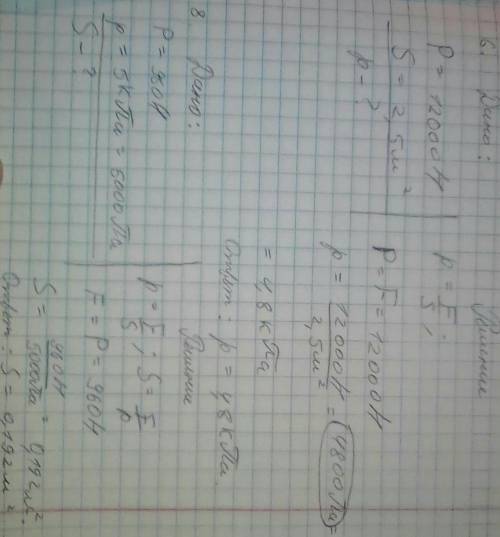 6. Дано:
P = 12000 Н
S = 2,5 м²
p - ?
Решение
p = F/S ;
P = F = 12000 Н
p = 12000 Н / 2,5 м² = 4800 Па =
= 4,8 кПа
Ответ: p = 4,8 кПа.
8 Дано:
P = 960 Н
p = 5 кПа = 5000 Па
S - ?
Решение
p = F/S ; S = F/p
F = P = 960 Н
S = 960 Н / 5000 Па = 0,192 м².
Ответ: S = 0,192 м²